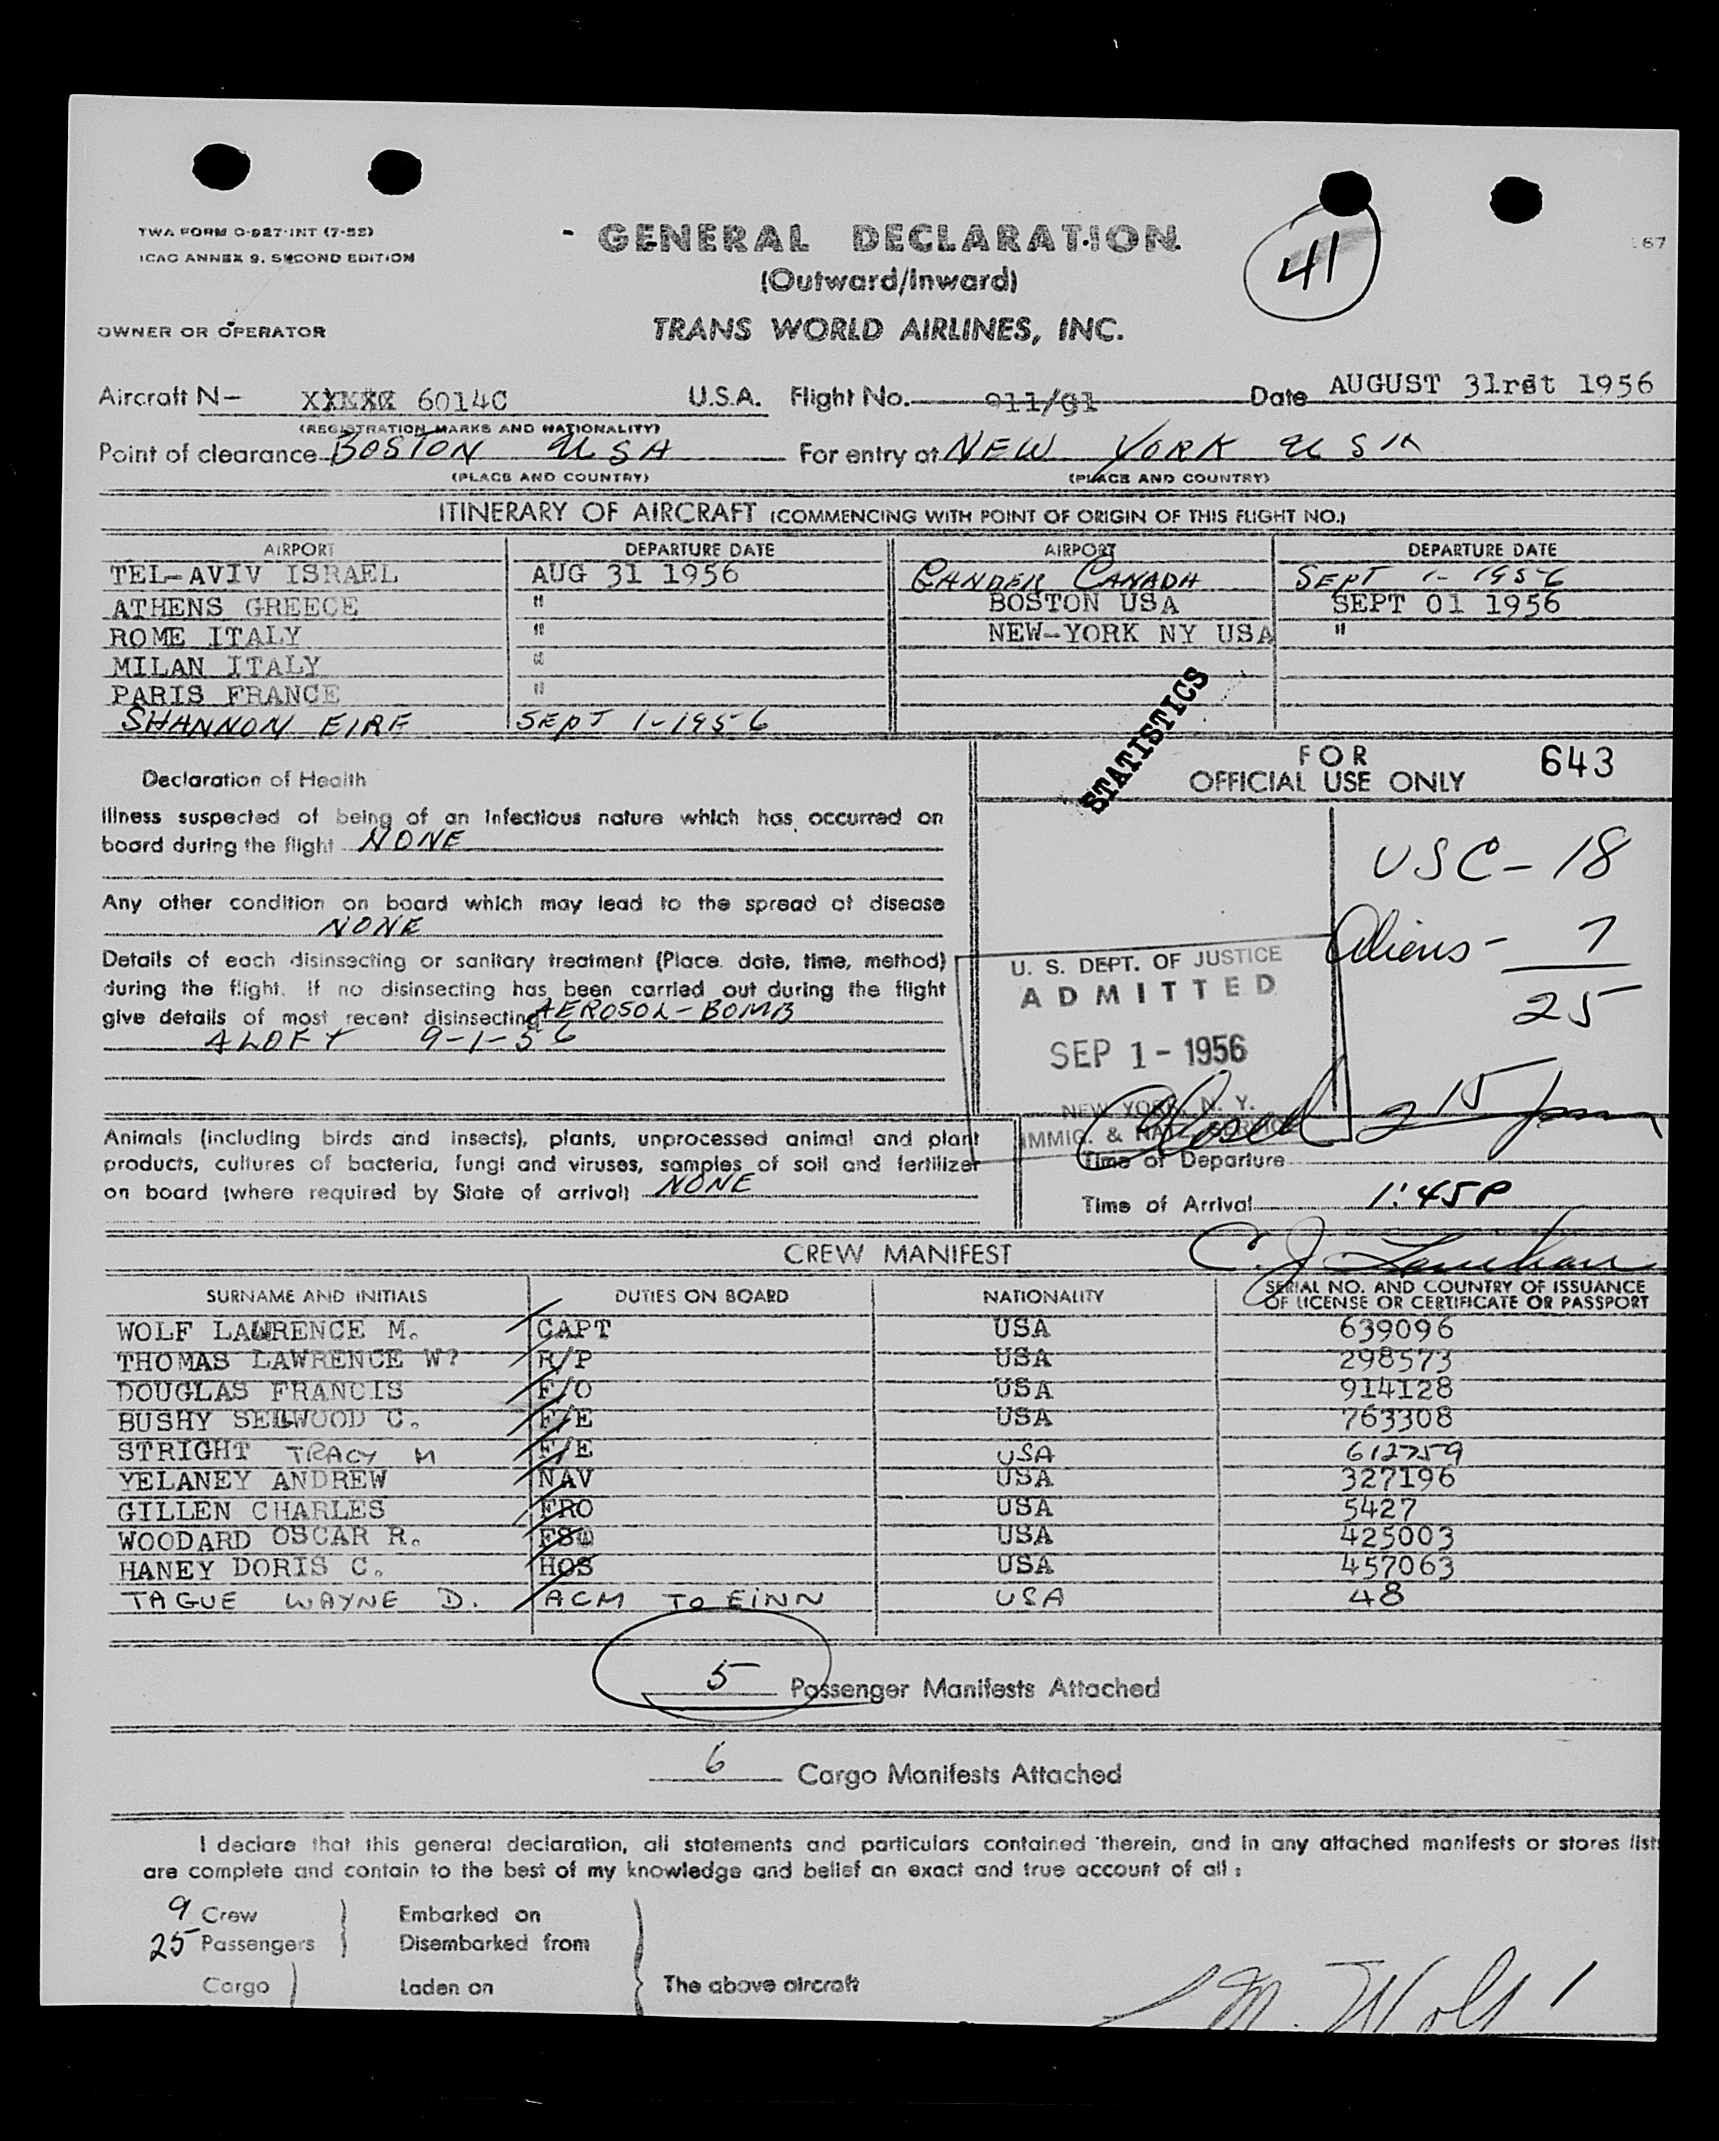 TWA FORM O-927-INT (7-52)
ICAO ANNEX 9, SECOND EDITION
GENERAL DECLARATION
(Outward/Inward)
41
67
OWNER OR OPERATOR
TRANS WORLD AIRLINES, INC.
Aircraft N- 6014C U.S.A. Flight No. 911/31 Date AUGUST 31rst 1956
(REGISTRATION MARKS AND NATIONALITY)
Point of clearance BOSTON USA For entry at NEW YORK USA
(PLACE AND COUNTRY) (PLACE AND COUNTRY)
ITINERARY OF AIRCRAFT (COMMENCING WITH POINT OF ORIGIN OF THIS FLIGHT NO.)
AIRPORT DEPARTURE DATE AIRPORT DEPARTURE DATE
TEL-AVIV ISRAEL AUG 31 1956 GANDER CANADA SEPT 1- 1956
ATHENS GREECE " BOSTON USA SEPT 01 1956
ROME ITALY " NEW-YORK NY USA "
MILAN ITALY "
PARIS FRANCE "
SHANNON EIRE SEPT 1-1956
STATISTICS
FOR
OFFICIAL USE ONLY 643
Declaration of Health
Illness suspected of being of an infectious nature which has occurred on
board during the flight NONE
Any other condition on board which may lead to the spread of disease
NONE
Details of each disinsecting or sanitary treatment (Place, date, time, method)
during the flight. If no disinsecting has been carried out during the flight
give details of most recent disinsecting AEROSOL-BOMB
ALOFT 9-1-56
USC - 18
Aliens - 7
25
U. S. DEPT. OF JUSTICE
ADMITTED
SEP 1 - 1956
NEW YORK, N. Y.
IMMIG. & NATZ. SERVICE
Closed 2 15 pm
Animals (including birds and insects), plants, unprocessed animal and plant
products, cultures of bacteria, fungi and viruses, samples of soil and fertilizer
on board (where required by State of arrival) NONE
Time of Departure
Time of Arrival 1:45P
CREW MANIFEST
SURNAME AND INITIALS DUTIES ON BOARD NATIONALITY SERIAL NO. AND COUNTRY OF ISSUANCE
OF LICENSE OR CERTIFICATE OR PASSPORT
WOLF LAWRENCE M. CAPT USA 639096
THOMAS LAWRENCE W? R/P USA 298573
DOUGLAS FRANCIS F/O USA 914128
BUSHY SELWOOD C. F/E USA 763308
STRIGHT TRACY M F/E USA 612759
YELANEY ANDREW NAV USA 327196
GILLEN CHARLES FRO USA 5427
WOODARD OSCAR R. USA 425003
HANEY DORIS C. HOS USA 457063
TAGUE WAYNE D. ACM TO EINN USA 48
5 Passenger Manifests Attached
6 Cargo Manifests Attached
I declare that this general declaration, all statements and particulars contained therein, and in any attached manifests or stores lists
are complete and contain to the best of my knowledge and belief an exact and true account of all:
9 Crew Embarked on
25 Passengers Disembarked from
Cargo Laden on The above aircraft
L M. Wolf